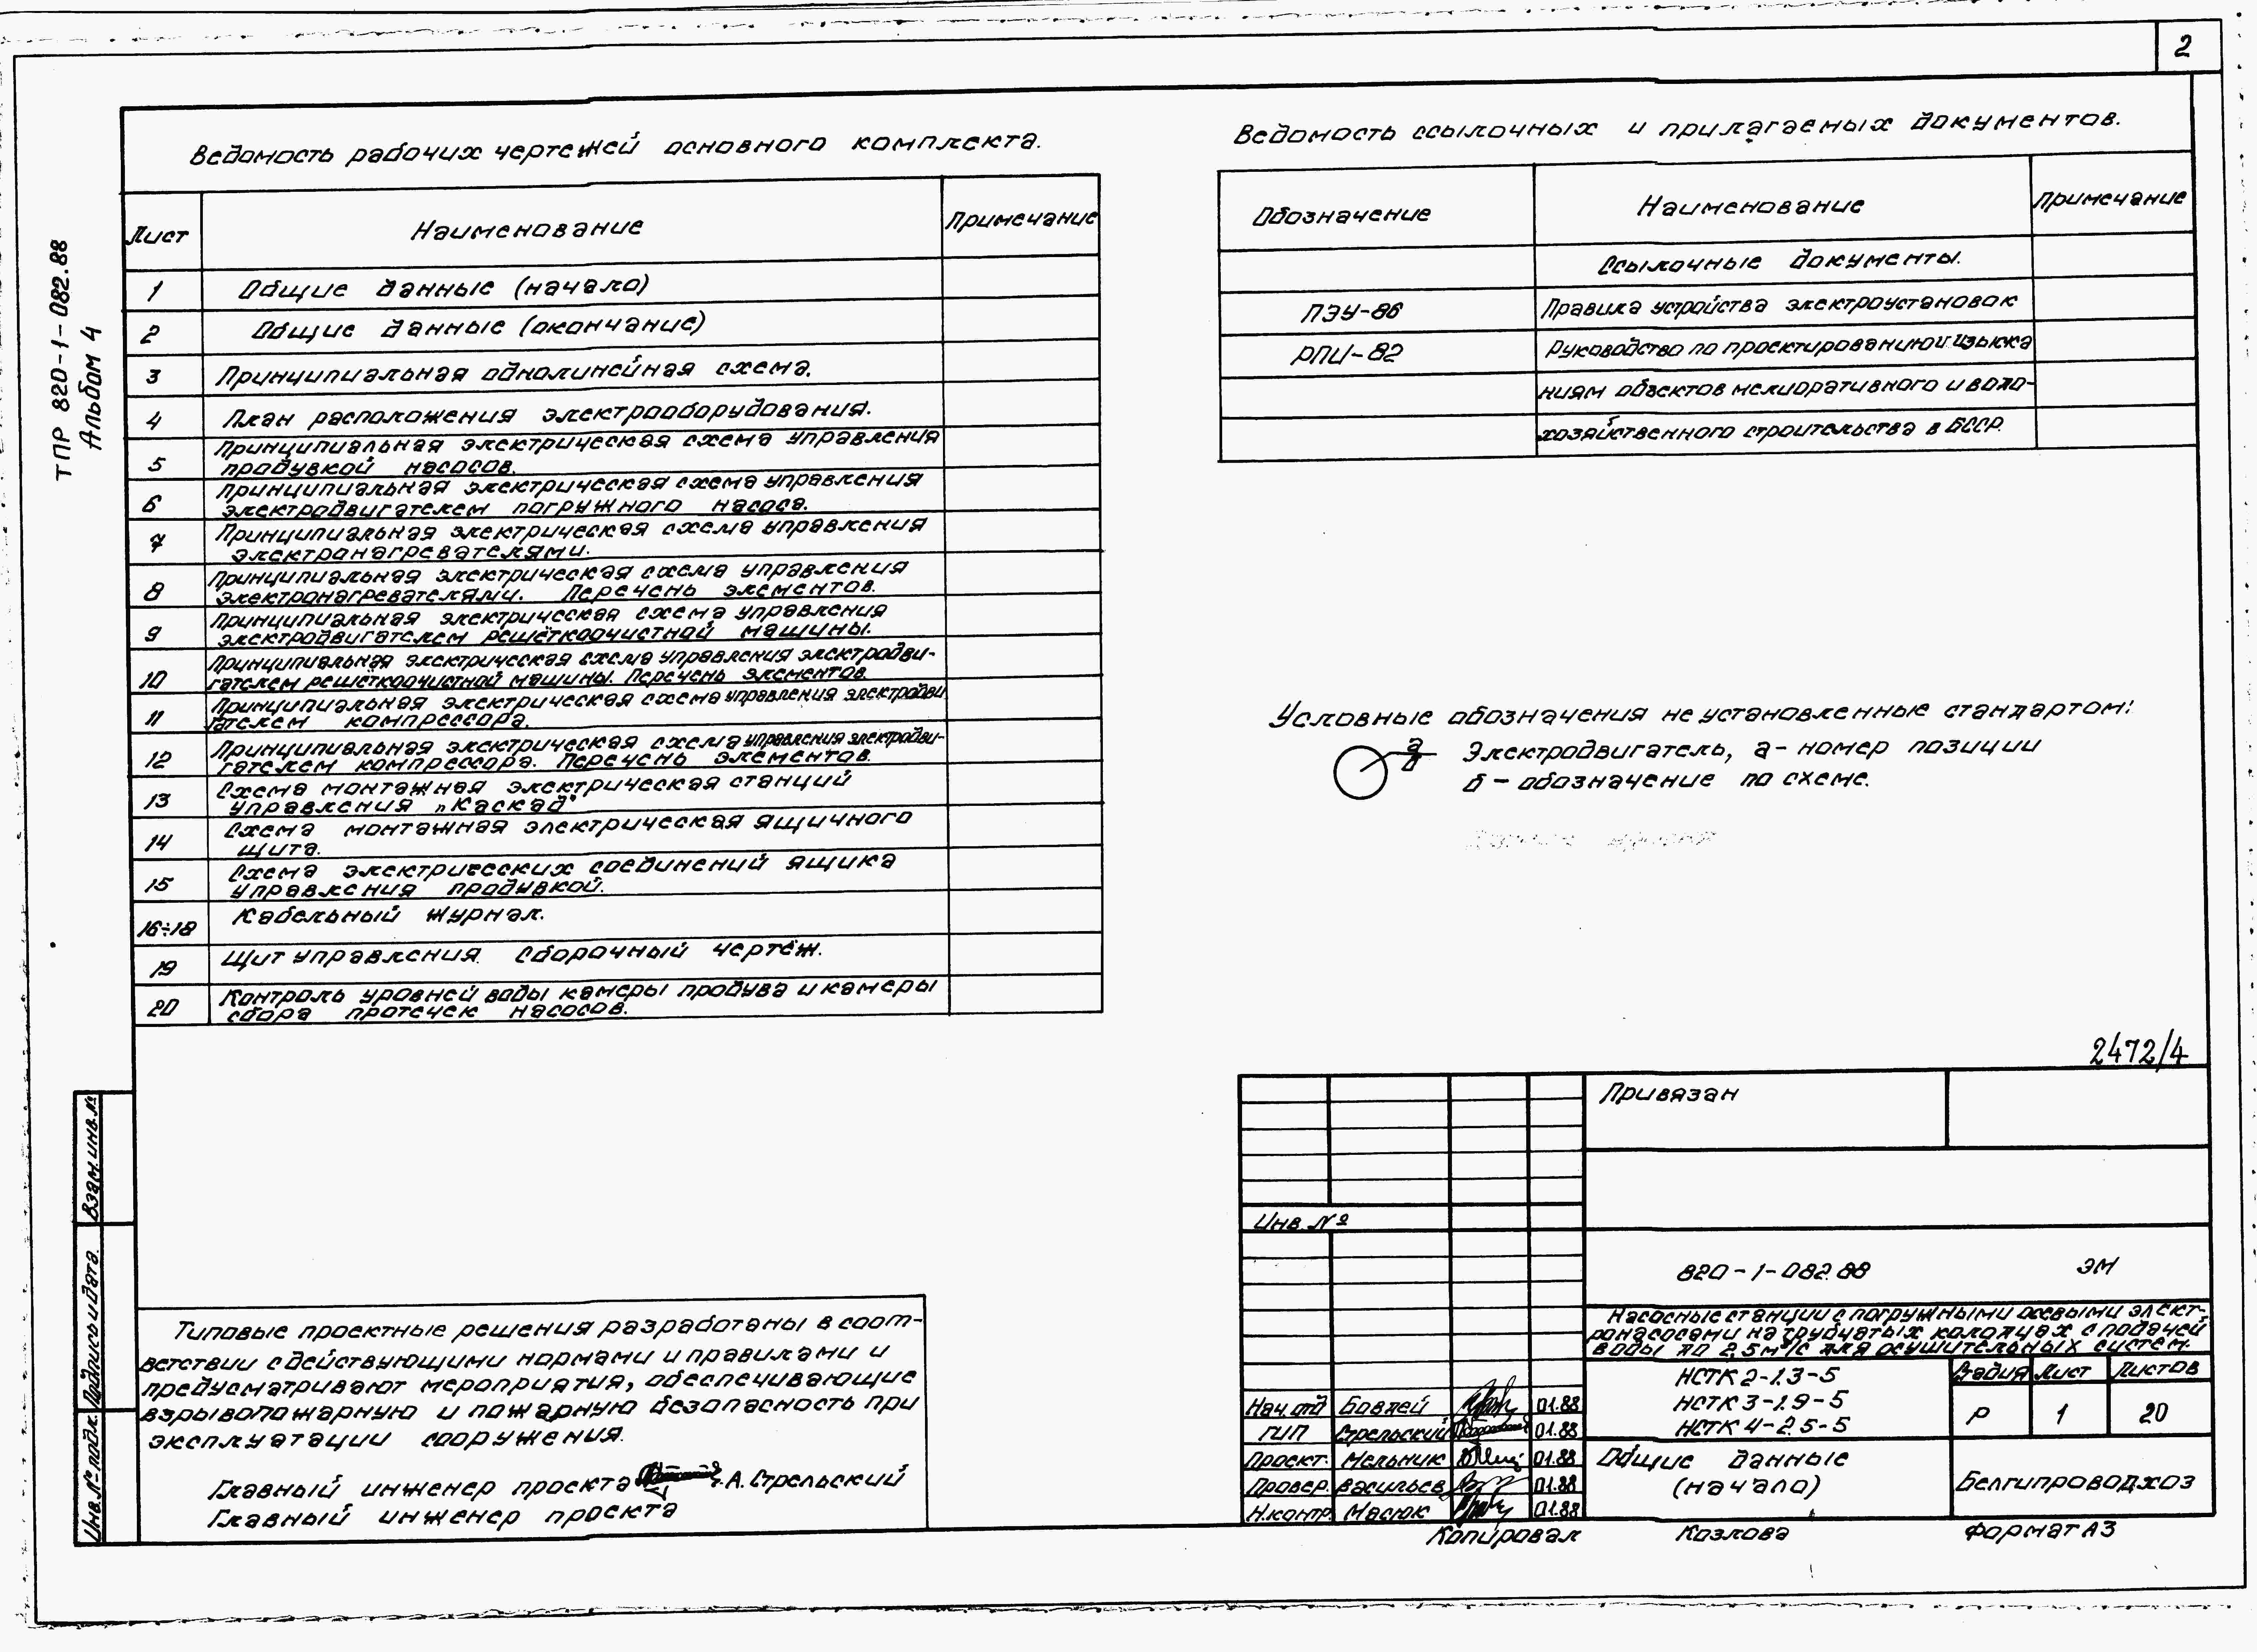 2
ТПР 820-1-082.88
Альбом 4
Ведомость рабочих чертежей основного комплекта.
Лист Наименование Примечание
1 Общие данные (начало)
2 Общие данные (окончание)
3 Принципиальная однолинейная схема.
4 План расположения электрооборудования.
5 Принципиальная электрическая схема управления
продувкой насосов.
6 Принципиальная электрическая схема управления
электродвигателем погружного насоса.
7 Принципиальная электрическая схема управления
электронагревателями.
8 Принципиальная электрическая схема управления
электронагревателями. Перечень элементов.
9 Принципиальная электрическая схема управления
электродвигателем решёткоочистной машины.
10 Принципиальная электрическая схема управления электродви-
гателем решёткоочистной машины. Перечень элементов.
11 Принципиальная электрическая схема управления электродви
гателем компрессора.
12 Принципиальная электрическая схема управления электродви-
гателем компрессора. Перечень элементов.
13 Схема монтажная электрическая станций
управления „Каскад"
14 Схема монтажная электрическая ящичного
щита.
15 Схема электриесских соединений ящика
управления продувкой.
16÷18 Кабельный журнал.
19 Щит управления. Сборочный чертёж.
20 Контроль уровней воды камеры продува и камеры
сбора протечек насосов.
Ведомость ссылочных и прилагаемых документов.
Обозначение Наименование Примечание
Ссылочные документы.
ПЭУ-86 Правила устройства электроустановок
РПИ-82 Руководство по проектированию и изыска
ниям объектов мелиоративного и водо-
хозяйственного строительства в БССР.
Условные обозначения не установленные стандартом:
а Электродвигатель, а- номер позиции
б б - обозначение по схеме.
2472/4
Типовые проектные решения разработаны в соот-
ветствии с действующими нормами и правилами и
предусматривают мероприятия, обеспечивающие
взрывопожарную и пожарную безопасность при
эксплуатации сооружения.
Главный инженер проекта А. Стрельский
Главный инженер проекта
Взам. инв. №
Подпись и дата.
Инв. № подл.
Привязан
Инв. №
820-1-082.88 ЭМ
Насосные станции с погружными осевыми элект-
ронасосами на трубчатых колодцах с подачей
воды до 2,5 м³/с для осушительных систем.
НСТК 2-1.3-5
НСТК 3-1.9-5
НСТК 4-2.5-5
Стадия Лист Листов
Р 1 20
Нач. отд Бовдей 01.88
ГИП Стрельский 01.88
Проект. Мельник 01.88
Провер. Васильев 01.88
Н.контр. Масюк 01.88
Общие данные
(начало)
Белгипроводхоз
Копировал Козлова Формат А3